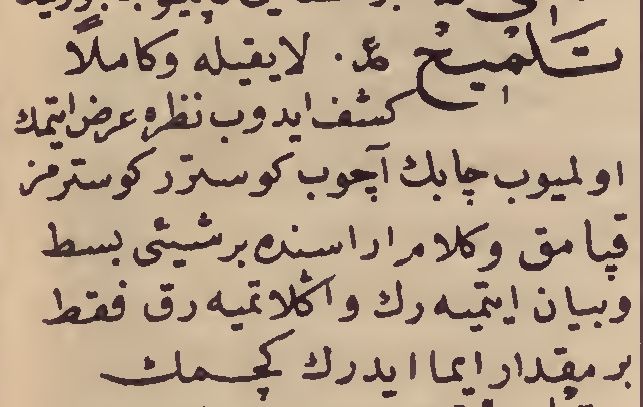 تَلْمِيحْ ع. لايقيله وكاملاً
كشف ايدوب نظره عرض ايتمك
اولميوب چابك آچوب كوسترر كوسترمز
قپامق وكلام اراسنده بر شيئى بسط
وبيان ايتميه رك واكلاتميه رق فقط
بر مقدار ايما ايدرك كچمك